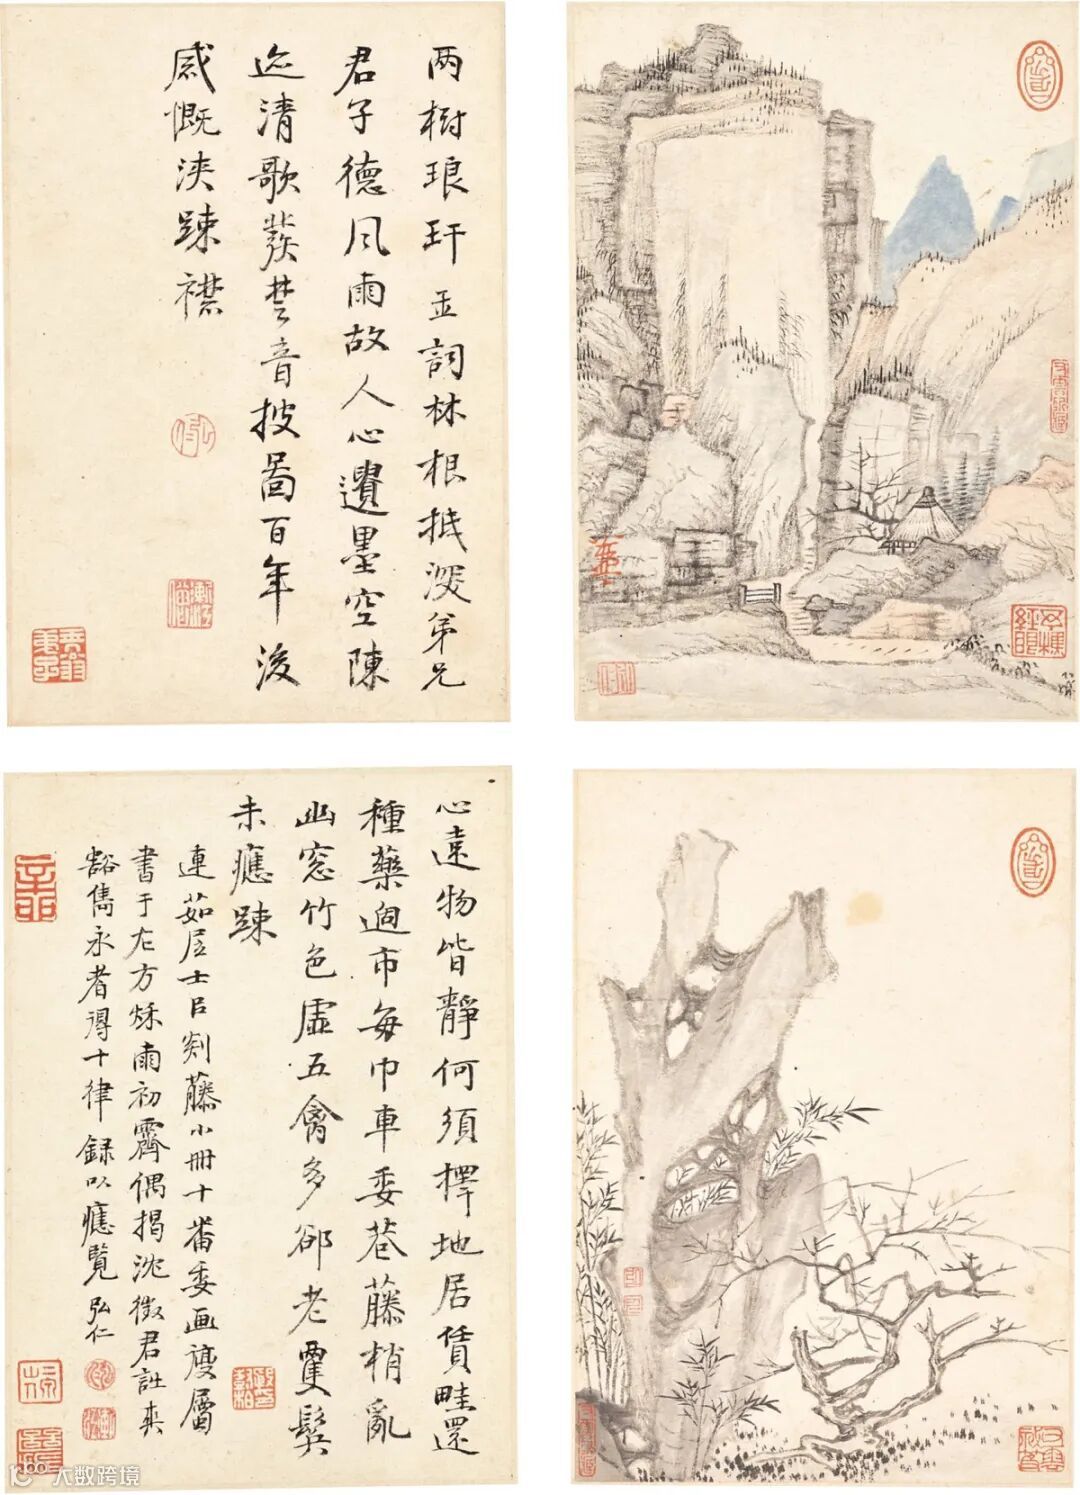 两树琅玕玉詞林根抵深弟兄
君子德風雨故人心遺墨空陳
迹清歌發楚音披圖百年後
感慨浹踈襟
心遠物皆靜何須擇地居賃畦還
種藥過市每巾車委巷藤梢亂
幽窓竹色虛五禽多郤老霣髮
未癒踈
連茹居士自剡藤小冊十番委画復屬
書于左方秌雨初霽偶揭沈徵君詩爽
豁雋永者得十律録以癒覽弘仁
大数跨境